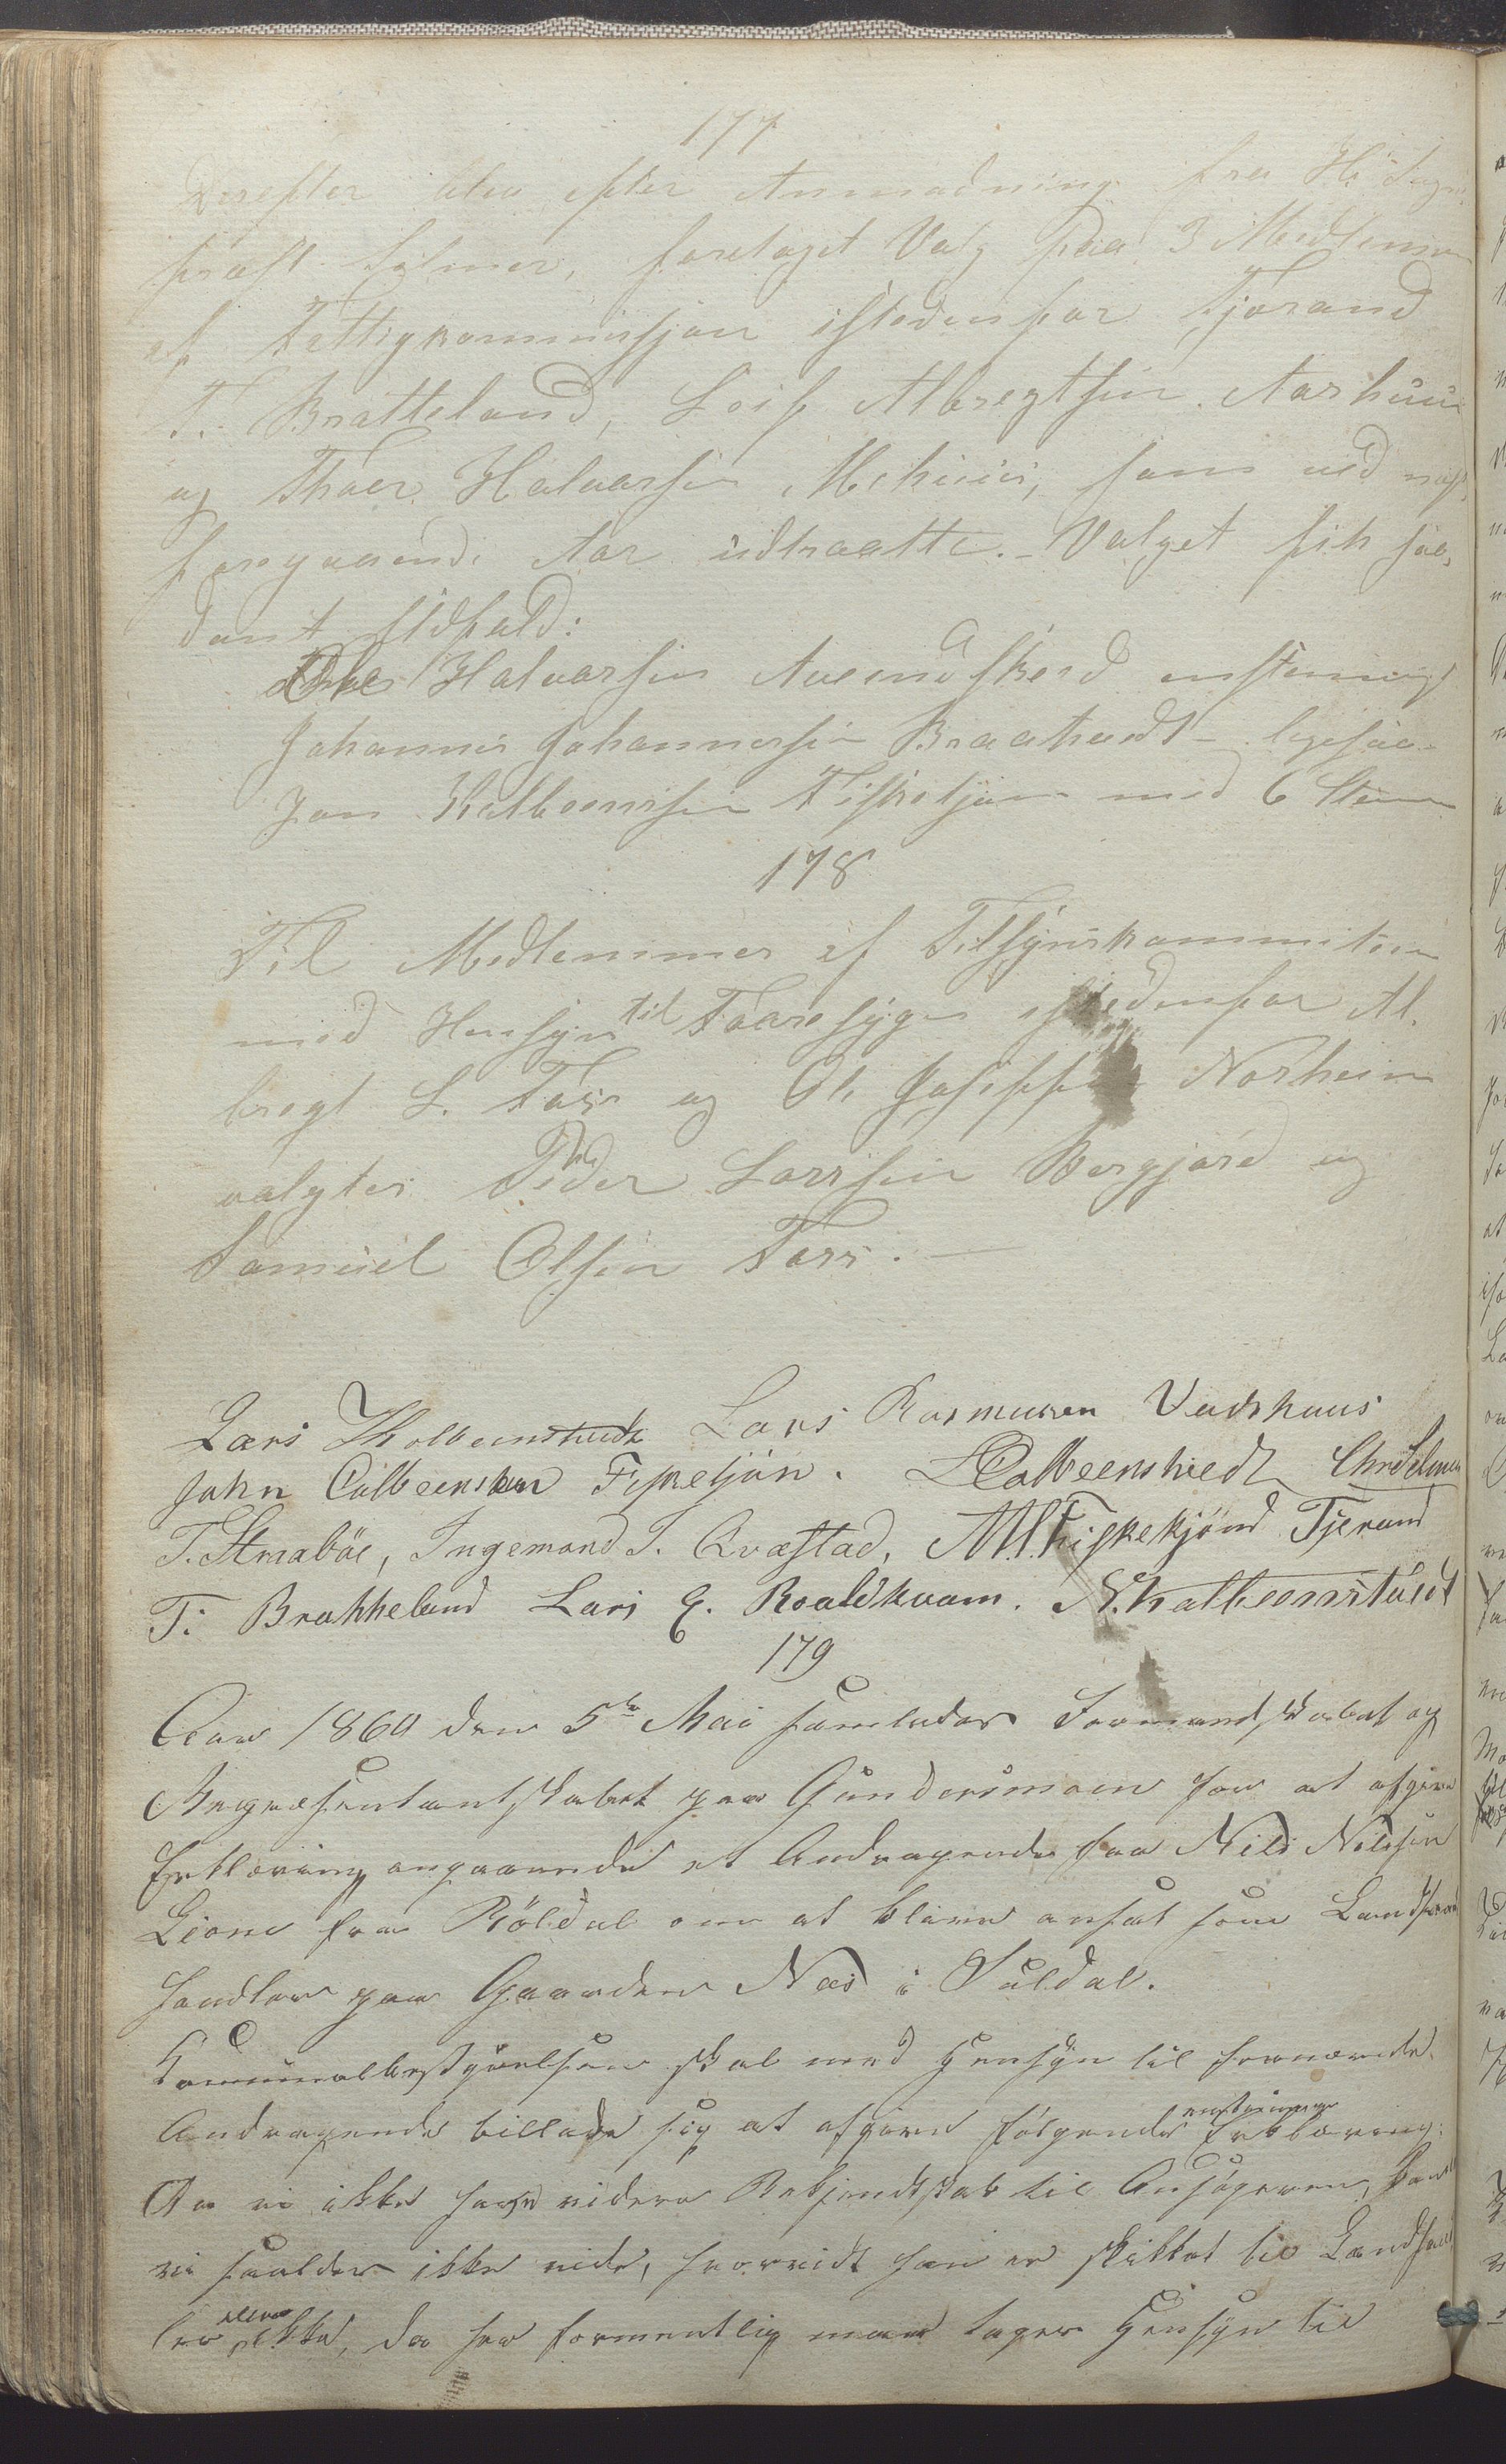 177
Derefter blev efter Anmodning fra Hr Sogne
præst Selmer, foretaget Valg paa 3 Medlemmer
af Fattigkommissjon istedenfor Tjerand
T. Bratteland, Leif Albregtsen Aarhuus
og Thoer Halvorsen Mehuus, som ved næst
foregaaende Aar udtraatte. - Valget fik saa,
dant Udfald:
Ole Halvorsen Aveindskeid enstemmigt
Johannes Johannessen Braatveidt - ligesaa -
Jon Kolbeensen Fisketjøn med 6 Stemmer
178
Til Medlemmer af Tilsynskommiteen
med Hensyn til Faaresygen istedenfor Al,
bregt L. Foss og Ole Joseppsen Norheim
valgtes Peder Larssen Bergjord og
Samuel Olsen Foss. —
Lars Kolbeenstvedt Lars Rasmussen Vadshuus
John Colbeensen Fisketjön. L Colbeenstvedt Chr Selmer
T. Straböe, Ingemond T. Qvæstad, M. Fiskekjönd Tjerand
T: Brahheland Lars G. Roaldkvam. N. Kolbeenstvedt
179
Aar 1860 den 5te Mai samledes Formandskabet og
Repræsentantskabet paa Gundersmoen for at afgive
Erklæring angaaende et Andragende fra Nils Nilssen
Lione fra Röldal om at blive ansat som Landhand
handler paa Gaarden Næs i Suldal.
Kommunalbestyrelsen skal med Hensyn til fornævnte
Andragende tillade sig at afgive følgende enstemmige Erklæring:
Da vi ikke have videre Bekjendtskab til Ansøgeren, kan
vi saaledes ikke vide, hvorvidt han er skikket til Landhand
ler eller ikke, da her formentlig maa tages Hensyn til